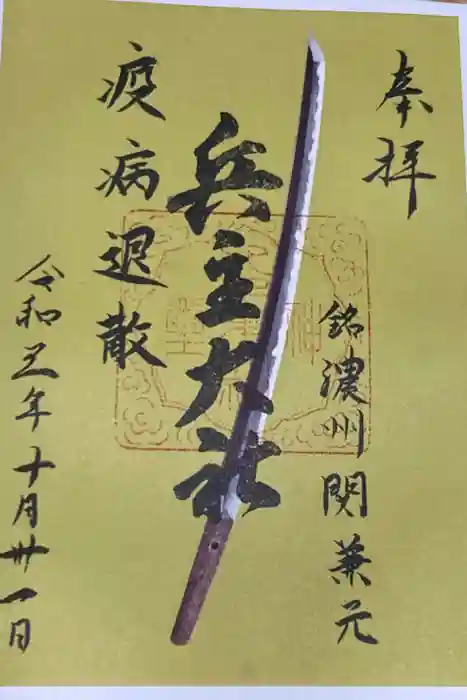 奉拝
銘 濃州関兼元
兵主大社
疫病退散
令和五年十月卅一日